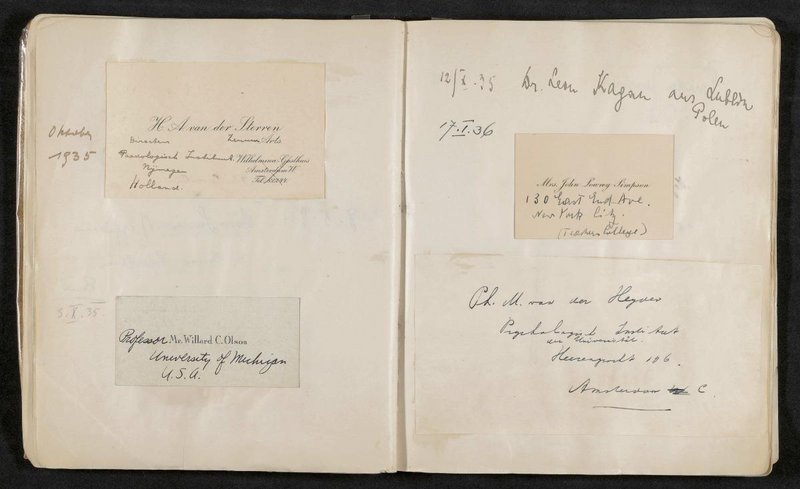 Oktober
1935
H. A. van der Sterren
Arts
Wilhelmina Gasthuis
Nijmegen
Amsterdam W.
Holland.
Tel.
5.X.35.
Professor Mr. Willard C. Olson
University of Michigan
U.S.A.
12/X.35 Dr. Leon Kagan aus Lublin
Polen
17.I.36
Mrs. John Lowry Simpson
130 East End Ave.
New York City.
(Teachers College)
Ph. M. van der Heyden
Psychologisch Instituut
der Universiteit.
Heerengracht 196
Amsterdam C.